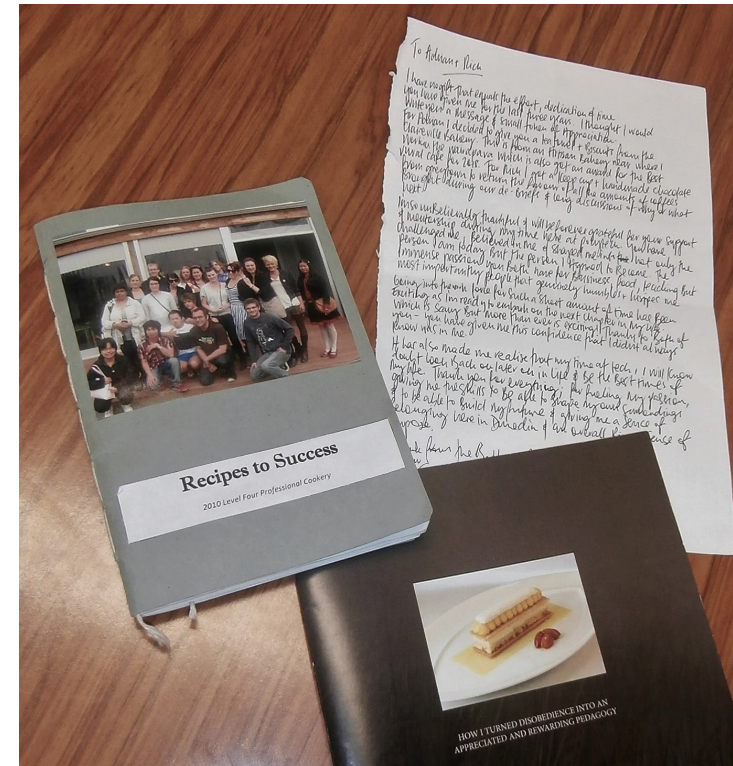 Recipes to Success
2010 Level Four Professional Cookery
To Adrian + Rich
I have no gift that equals the effort, dedication & time
you have given me for the last three years. I thought I would
write you a message & small token of appreciation.
For Adrian I decided to give you a tea towel + Biscuits from the
Clareville Bakery. This is from an Artisan Bakery near where I
which is also got an award for the Best
rural cafe for 2018. For Rich I got a keep cup + handmade chocolate
from greytown to return the favour of all the amount of coffees
brought during our de-briefs & long discussions of why or what
next.
I'm so unbelievably thankful & will be forever grateful for your support
& mentorship during my time here at polytech. You have
challenged me, Believed in me & shaped me into not only the
person I am today But the person I aspired to Become. The
immense passion you both have for Business, food, teaching But
most importantly people that genuinely humbles & inspires me
Being into them for such a short amount of time has been
exciting as I'm ready to embark on the next chapter in my life
which is scary But more than ever is exciting! Thanks to Both of
you - you have given me this confidence that I didn't always
know was in me.
It has also made me realise that my time at tech, I will know
doubt look Back on later on in life & Be the Best times of
my life. Thank you for everything, for fueling my passion,
giving me the skills to be able to shape my own surroundings
& to be able to Build my future & giving me a sense of
belonging here in Dunedin & an overall sense of
purpose.
from the
HOW I TURNED DISOBEDIENCE INTO AN
APPRECIATED AND REWARDING PEDAGOGY